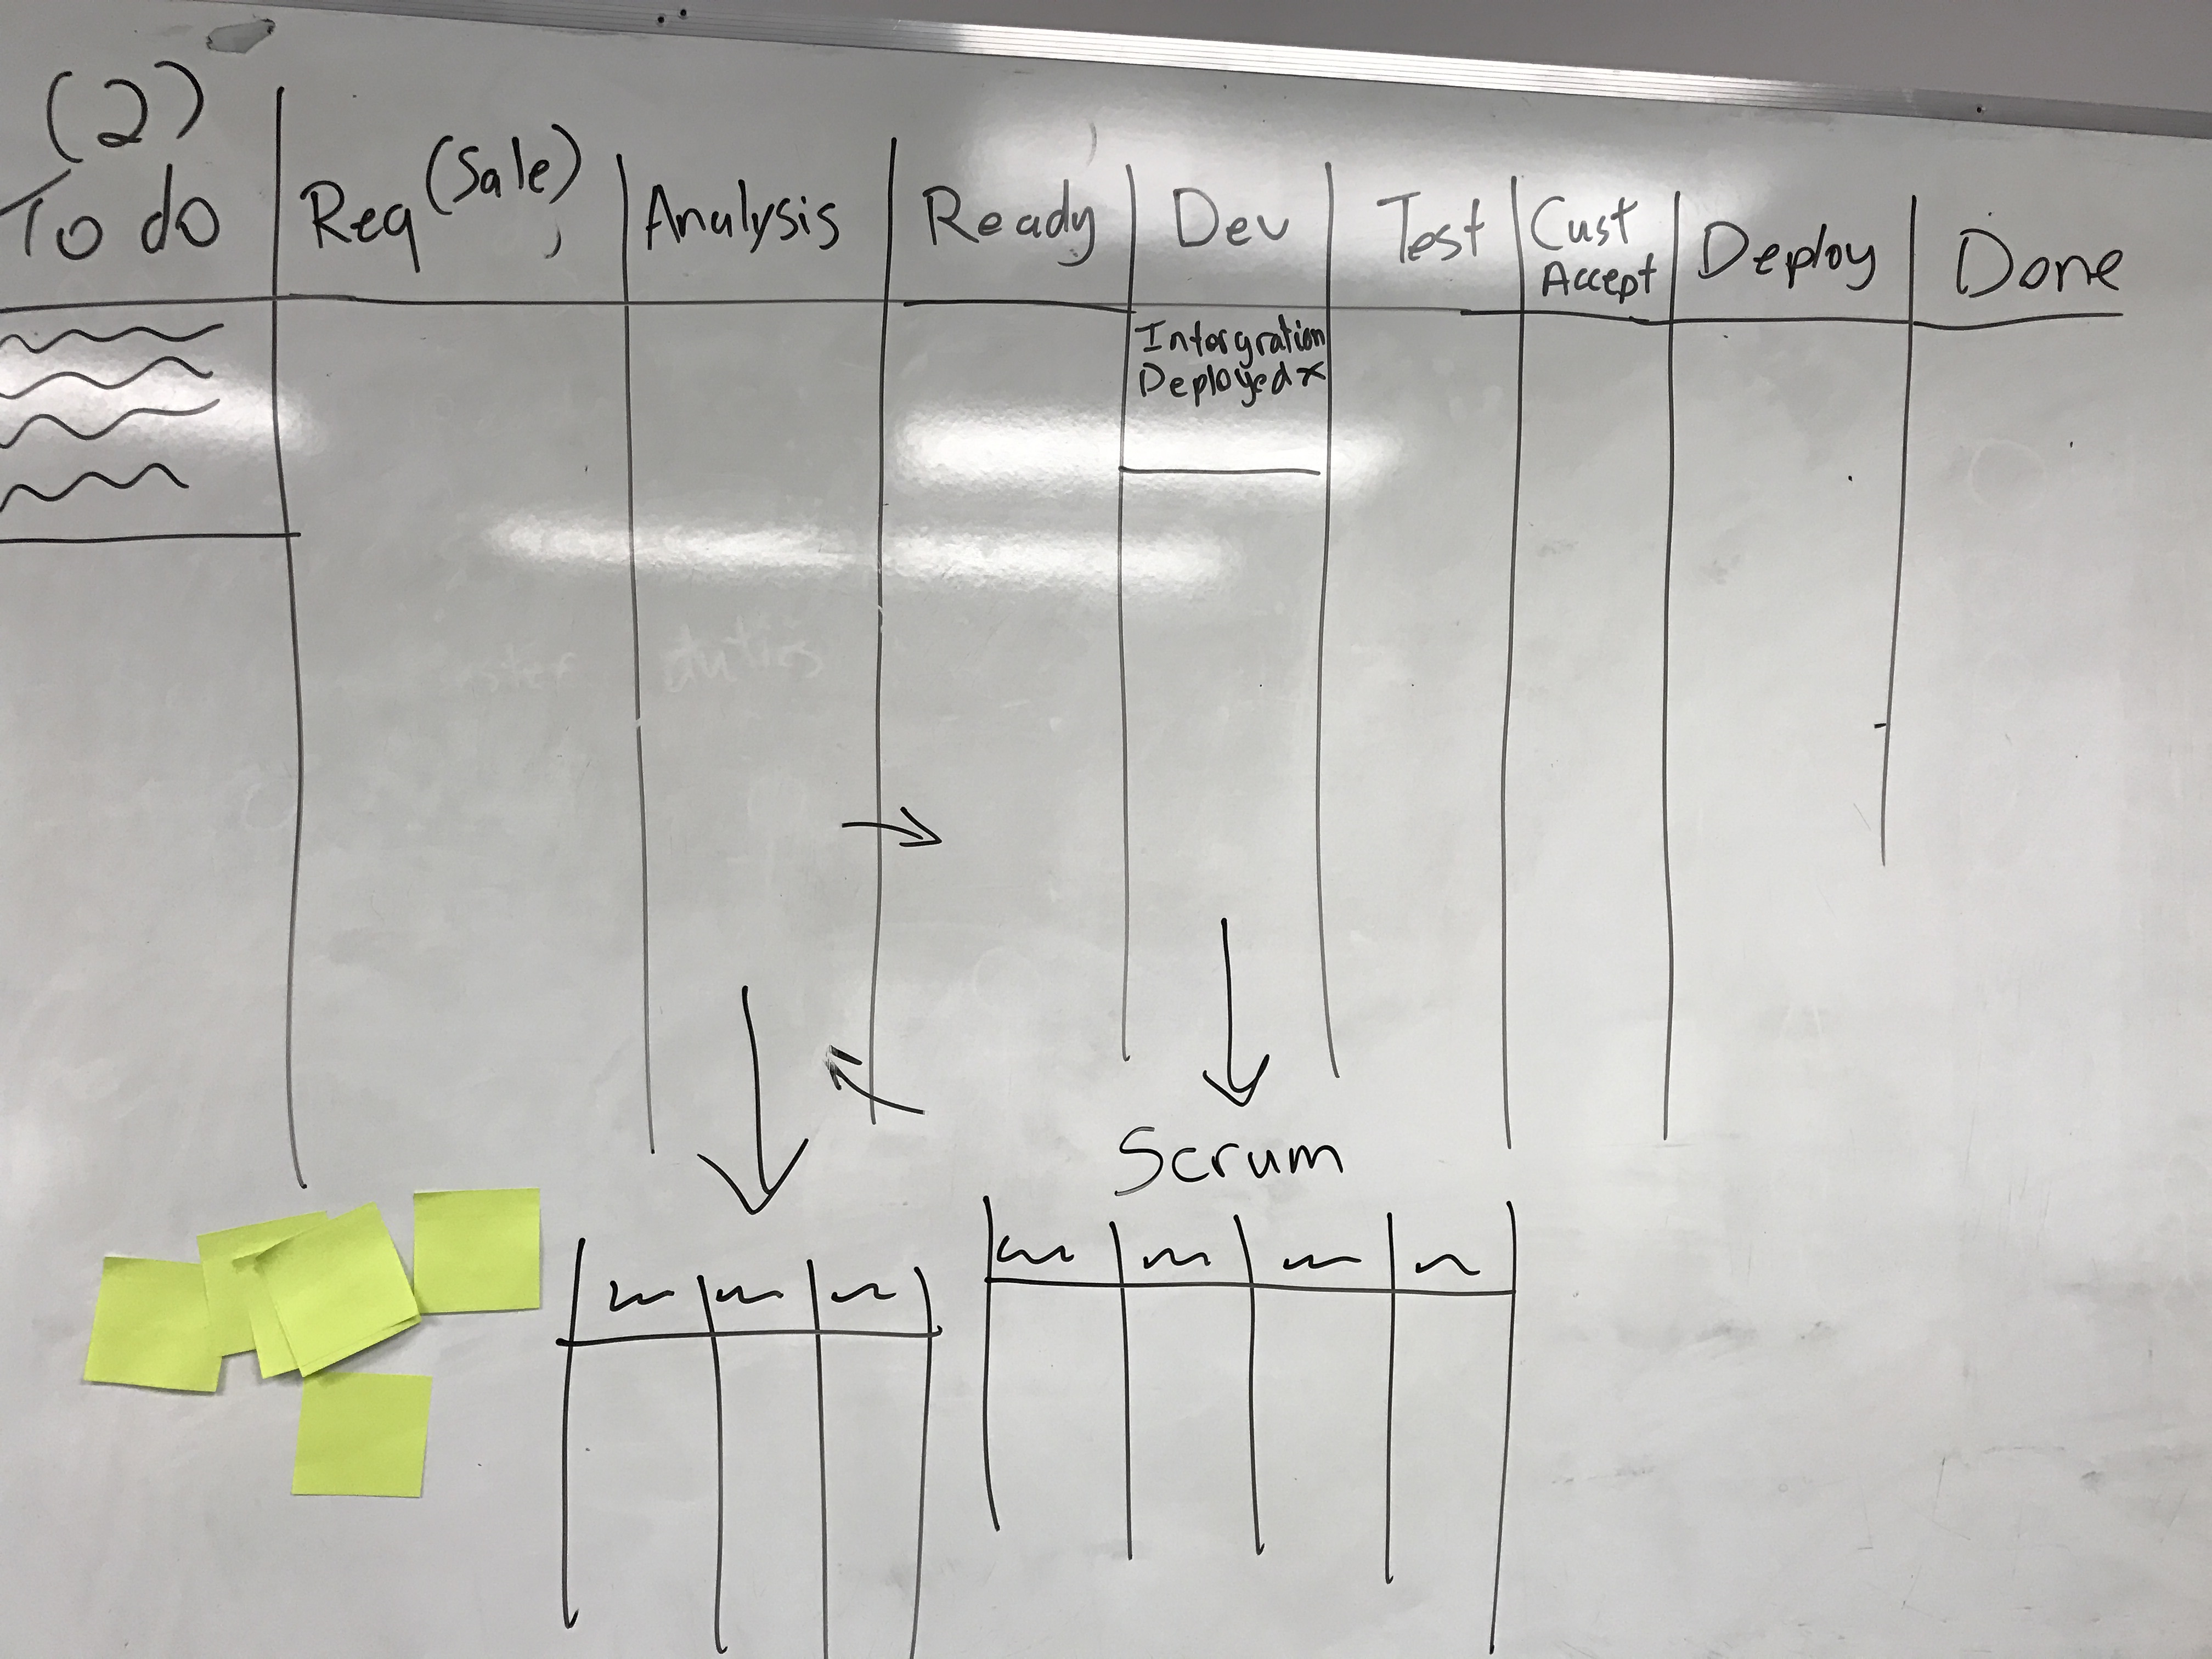 (2)
To do
Req (Sale)
Analysis
Ready
Dev
Test
Cust
Accept
Deploy
Done
Intorgration
Deployed x
Scrum